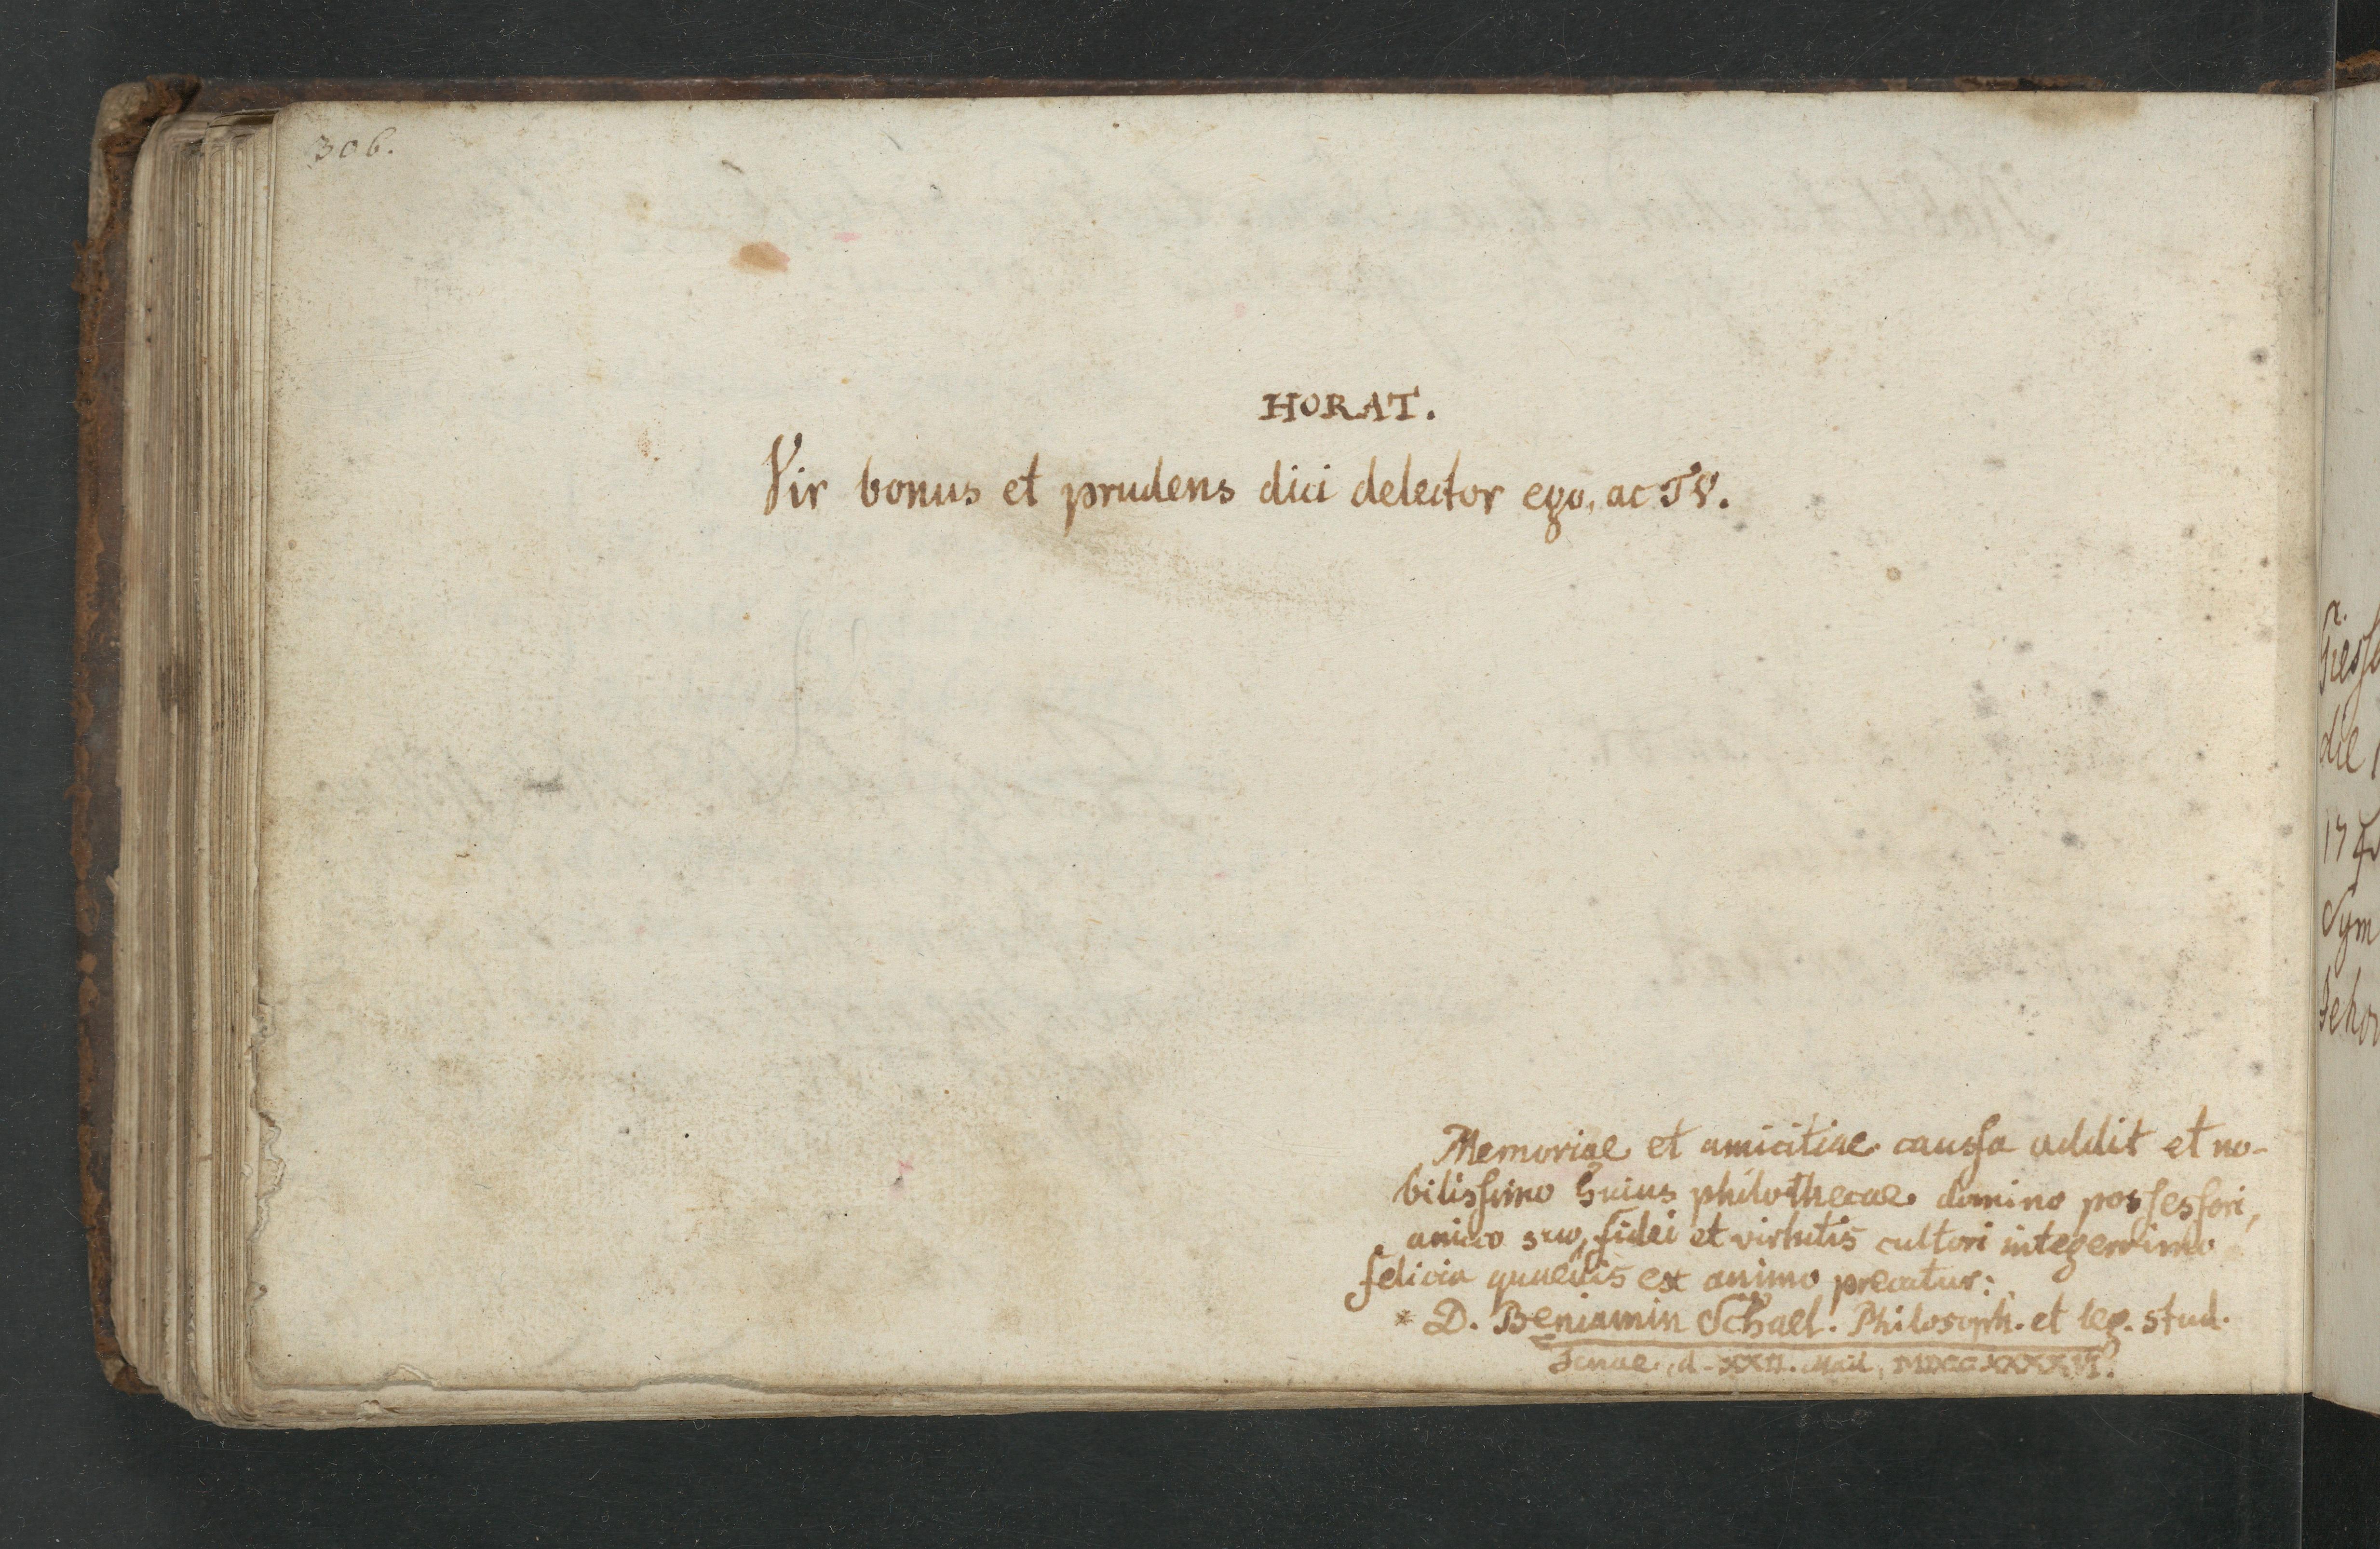 306.
HORAT.
Vir bonus et prudens dici delector ego, ac TV.
Memoriae et amicitiae caussa addit et no-
bilissimo huius philothecae domino possessori,
amico suo, fidei et virtutis cultori integerrimo
felicia quaevis ex animo precatur:
D. Beniamin Schael. Philosoph. et leg. stud.
Jenae, d. XXII. Maii, MDCCXXXXVI.
die
Sym